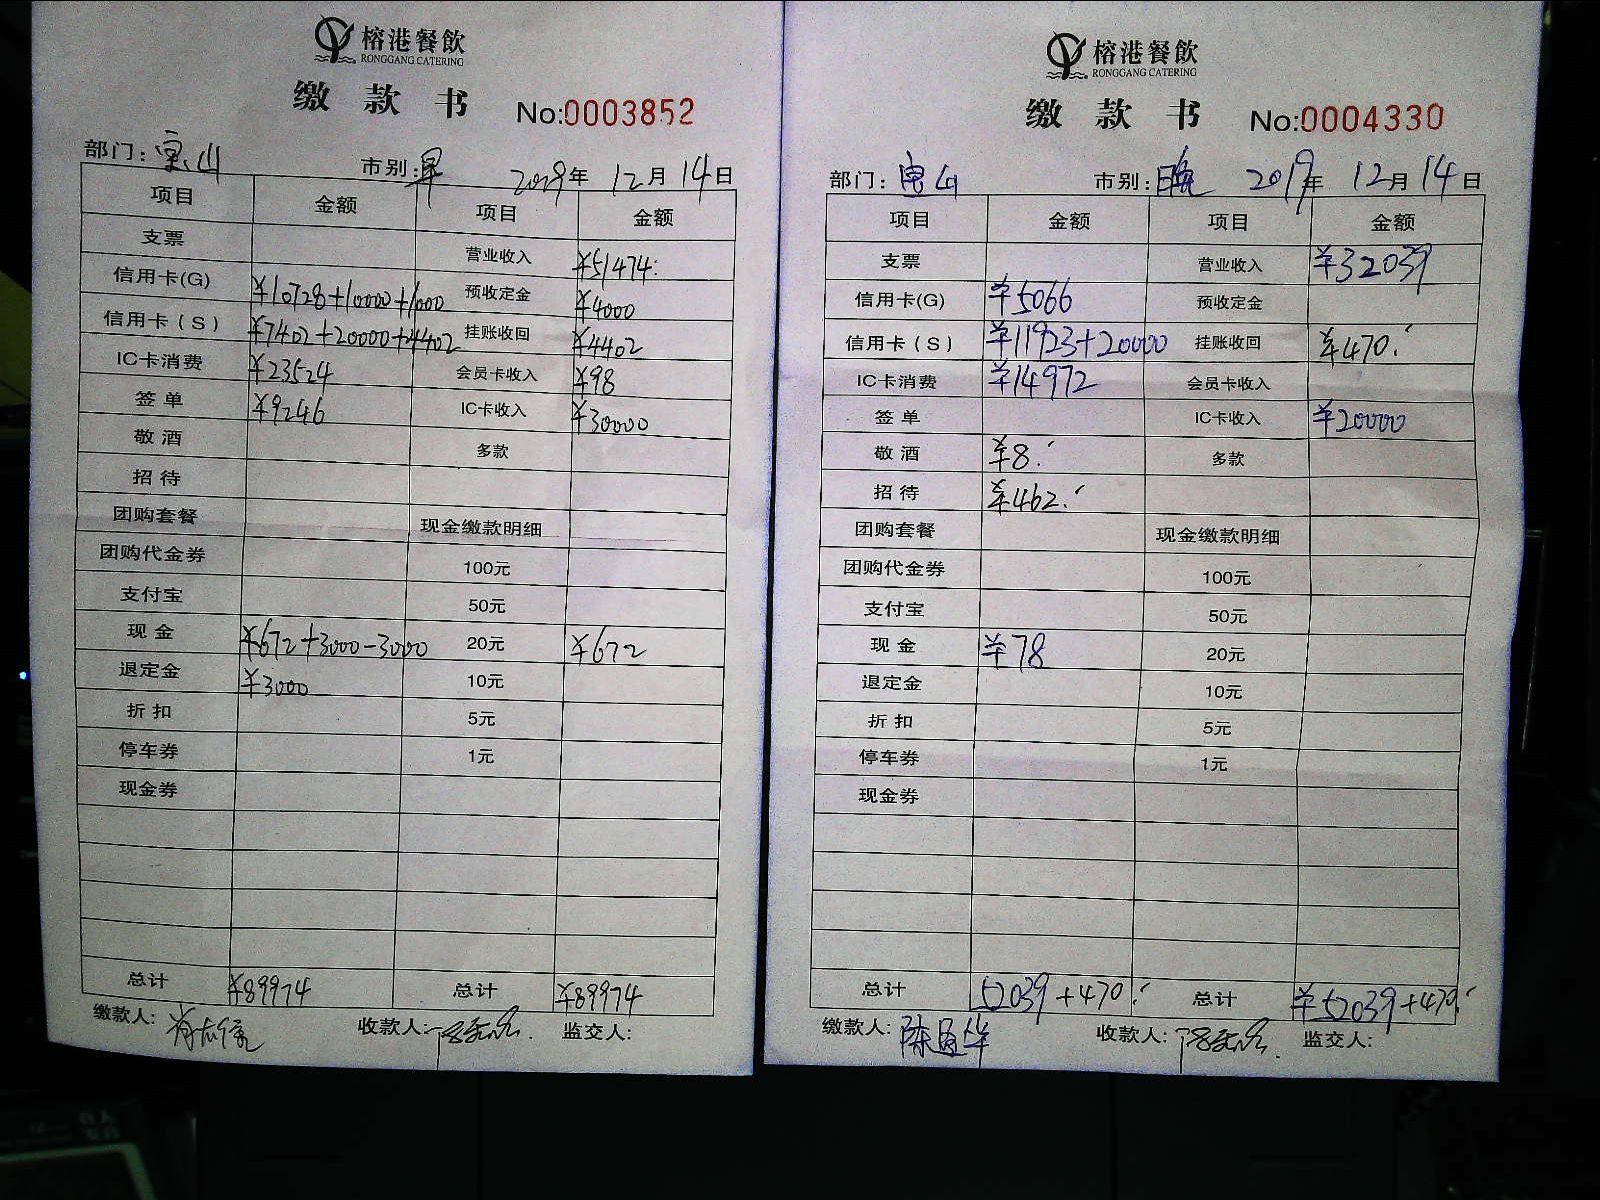 榕港餐飲
RONGGANG CATERING
缴款书 No:0003852
部门:宝山 市别:早 2019年12月14日
项目 金额 项目 金额
支票 营业收入 ¥51474.
信用卡(G) ¥10728+10000+1000 预收定金 ¥4000
信用卡(S) ¥7402+20000+4402 挂账收回 ¥4402
IC卡消费 ¥23524 会员卡收入 ¥98
签单 ¥9246 IC卡收入 ¥30000
敬酒 多款
招待
团购套餐 现金缴款明细
团购代金券 100元
支付宝 50元
现金 ¥672+3000-3000 20元 ¥672
退定金 ¥3000 10元
折扣 5元
停车券 1元
现金券
总计 ¥89974 总计 ¥89974
缴款人: 收款人: 监交人:
榕港餐飲
RONGGANG CATERING
缴款书 No:0004330
部门:宝山 市别:晚 2019年12月14日
项目 金额 项目 金额
支票 营业收入 ¥32039
信用卡(G) ¥5066 预收定金
信用卡(S) ¥11923+20000 挂账收回 ¥470.
IC卡消费 ¥14972 会员卡收入
签单 IC卡收入 ¥20000
敬酒 ¥8. 多款
招待 ¥462.
团购套餐 现金缴款明细
团购代金券 100元
支付宝 50元
现金 ¥78 20元
退定金 10元
折扣 5元
停车券 1元
现金券
总计 52039+470. 总计 ¥52039+470.
缴款人: 收款人: 监交人: